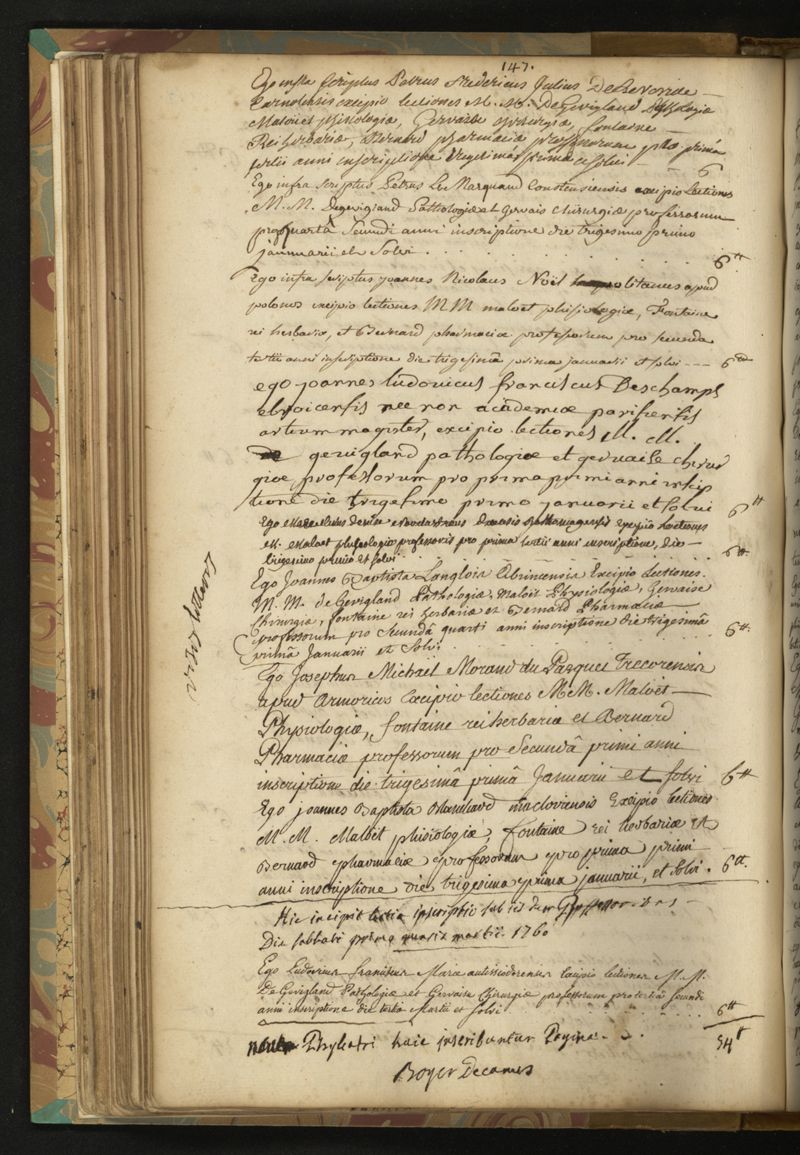 147.
Ego infra scriptus Petrus Fredericus Julius
excipio lectiones M. M. De Gevigland Pathologiæ
Malouet phisiologiæ, Gervaise Chirurgiæ, fontaine
Rei herbariæ, Bernard pharmaciæ professorum pro prima
tertii anni inscriptione trigesima prima et solvi
6
Ego infra scriptus Petrus Le Marquand Constensiensis excipio Lectiones
M. M. Degevigland Pathologiæ et Gervais chirurgiæ professorum
pro quartâ secundi anni inscriptione die trigesimo primo
januarii et Solvi . . . . . . 6tt
Ego infra sciptus joannes Nicolaus Noël olitanus apud
polonos excipio lectiones MM maloet phisiologiæ, Fontaine
rei herbariæ, et Bernard pharmaciæ professorum pro secunda
tertii anni inscriptione die trigesimâ primâ januarii et solvi --- 6tt
ego joannes ludovicus franciscus Deschamps
ebroicensis nec non academiæ parisiensis
artium magister, excipio lectiones M. M.
de gevigland pathologiæ et gervaise chirur
giæ professorum pro prima primi anni inscip
tione die trigesimo primo januarii et solvi 6tt
Ego excipio lectiones
M. Maloet phisiologiæ professoris pro prima tertii anni inscriptione, die
trigesimo primo et solvi . . . . . . 6tt
Ego Joannes Baptista Langlois Abrincensis Excipio Lectiones.
M. M. de Gevigland Pathologiæ, Maloët Physiologiæ, Gervaise
Chirurgiæ, fontaine rei herbariæ et Bernard Pharmaciæ
professorum pro Secundâ quarti anni inscriptione die trigesimâ
primâ Januarii et Solvi . . . . . . 6tt
Ego Josephus Michaël Morand du Pasquet Trecorensis
apud Armoricos Excipio lectiones M.M. Maloët
Physiologiæ, fontaine rei herbariæ et Bernard
Pharmaciæ professorum pro Secundâ primi anni
inscriptione die trigesimâ primâ Januarii et solvi 6tt
Ego joannes Baptista macloviensis Excipio lectiones
M. M. Maloët phisiologiæ, fontaine rei herbariæ et
Bernard pharmaciæ professorum pro prima primi
anni inscriptione die trigesima prima januarii, et Solvi. 6tt
Hic incipit tertia inscriptio sub iisdem Professoribus
Die sabbati prima mensis martii 1760
Ego Ludovicus franciscus Mara autissiodorensis Excipio lectiones M. M.
De Gevigland Pathologiæ et Gervaise Chirurgiæ professorum pro tertiâ secundi
anni inscriptione die tertiâ Martii et solvi . . . . . . 6tt
54tt
novem Phyliatri hacce inscribuntur Pagina.
Boyer Decanus